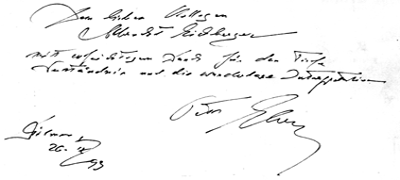 Dem lieben Kollegen
Albrecht
mit aufrichtigem Dank für das tiefe
Verständnis und die wunderbare Interpretation
Petr Eben
26.
93